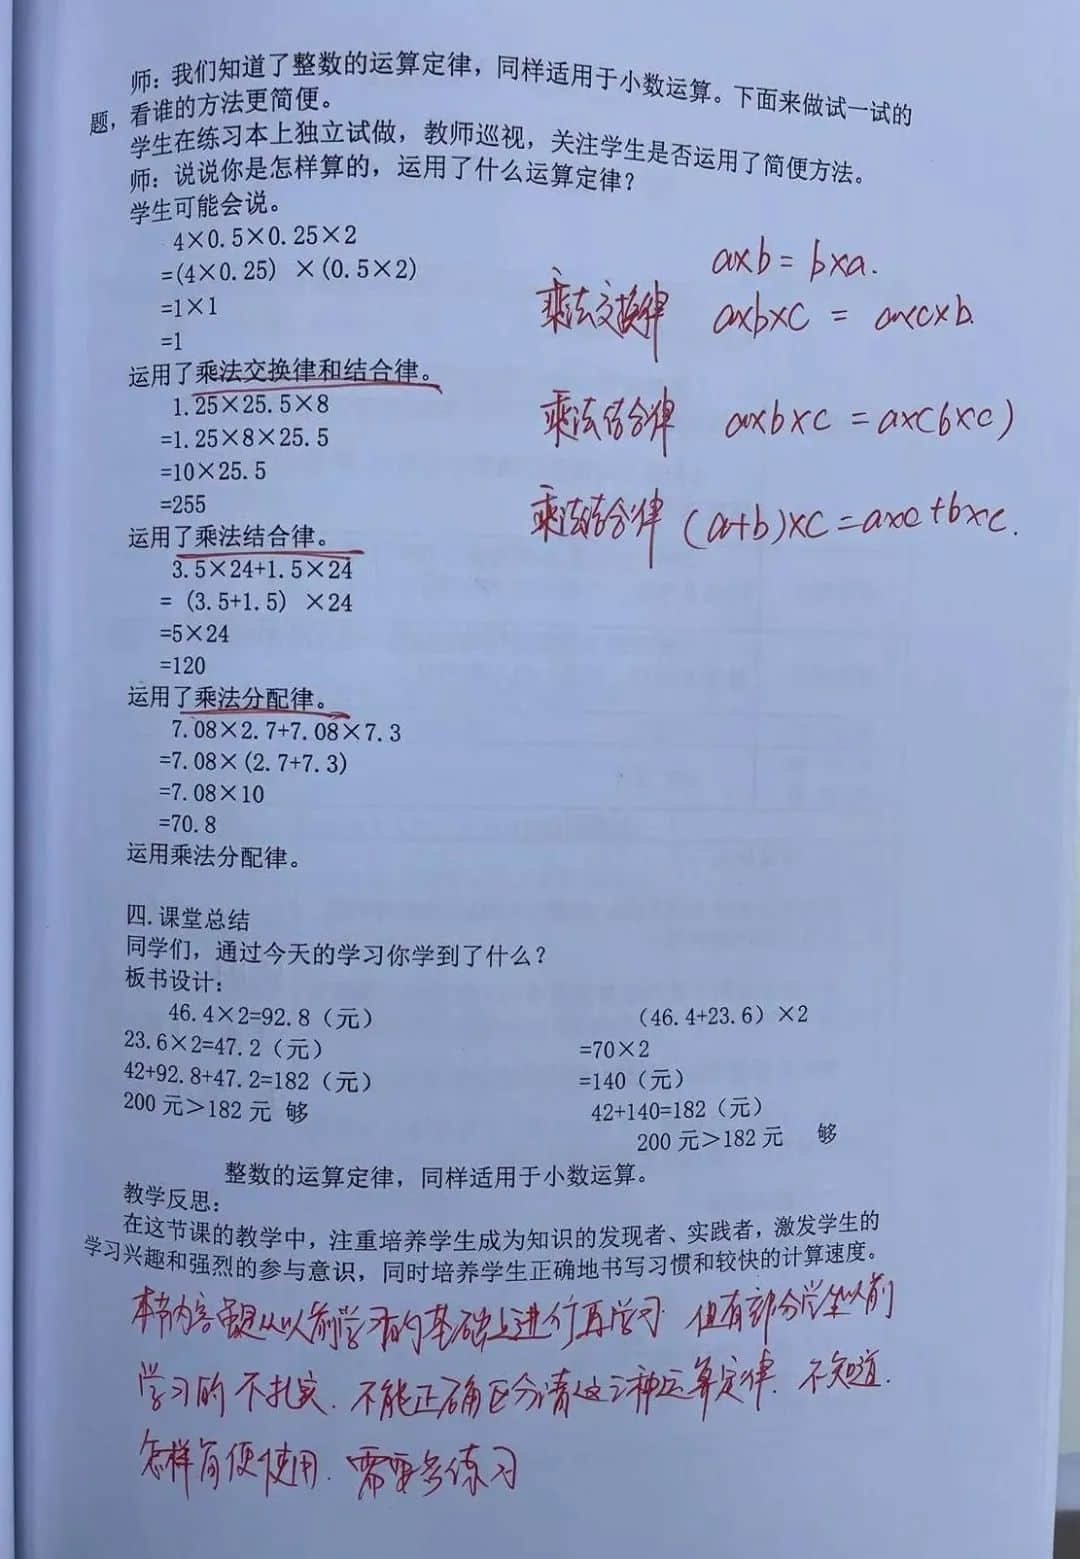 师：我们知道了整数的运算定律，同样适用于小数运算。下面来做试一试的
题，看谁的方法更简便。
学生在练习本上独立试做，教师巡视，关注学生是否运用了简便方法。
师：说说你是怎样算的，运用了什么运算定律？
学生可能会说。
4×0.5×0.25×2
=(4×0.25) ×(0.5×2)
=1×1
=1
运用了乘法交换律和结合律。
1.25×25.5×8
=1.25×8×25.5
=10×25.5
=255
运用了乘法结合律。
3.5×24+1.5×24
= (3.5+1.5) ×24
=5×24
=120
运用了乘法分配律。
7.08×2.7+7.08×7.3
=7.08×(2.7+7.3)
=7.08×10
=70.8
运用乘法分配律。
a×b = b×a.
乘法交换律 a×b×c = a×c×b.
乘法结合律 a×b×c = a×(b×c)
乘法结合律 (a+b)×c=a×c+b×c.
四.课堂总结
同学们，通过今天的学习你学到了什么？
板书设计：
46.4×2=92.8（元） （46.4+23.6）×2
23.6×2=47.2（元） =70×2
42+92.8+47.2=182（元） =140（元）
200元＞182元 够 42+140=182（元）
200元＞182元 够
整数的运算定律，同样适用于小数运算。
教学反思：
在这节课的教学中，注重培养学生成为知识的发现者、实践者，激发学生的
学习兴趣和强烈的参与意识，同时培养学生正确地书写习惯和较快的计算速度。
本节内容虽是从以前学习的基础上进行再学习 但有部分学生以前
学习的不扎实. 不能正确区分清这三种运算定律. 不知道.
怎样简便使用. 需要多练习